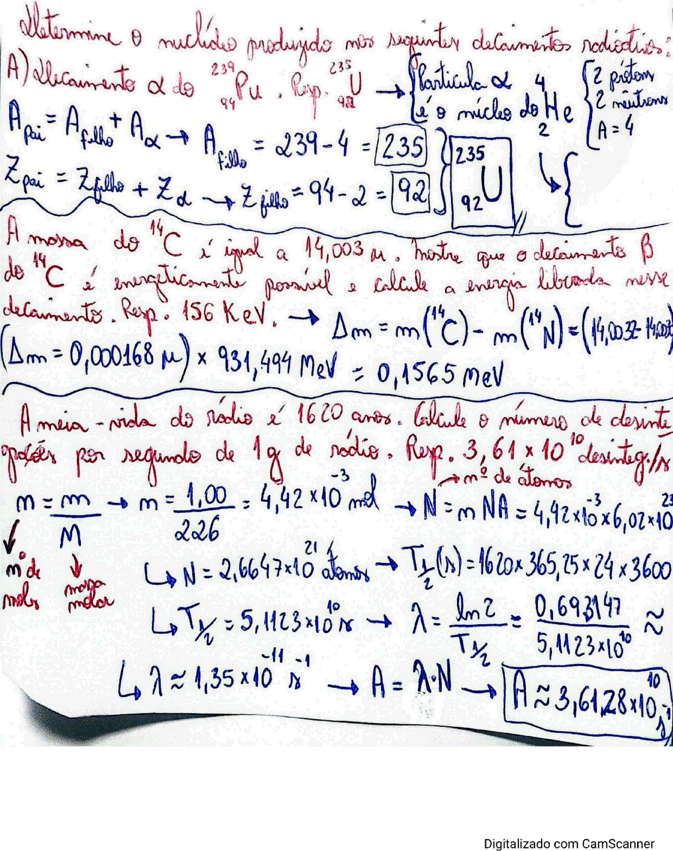 Determine o nuclídeo produzido nos seguintes decaimentos radioativos:
A) Decaimento α do ²³⁹₉₄Pu. Resp. ²³⁵₉₂U → { Partícula α é o núcleo do ⁴₂He { 2 prótons 2 nêutrons A = 4
A pai = A filho + Aα → A filho = 239 - 4 = 235
Z pai = Z filho + Zα → Z filho = 94 - 2 = 92 } ²³⁵₉₂U //
A massa do ¹⁴C é igual a 14,003 u. Mostre que o decaimento β
do ¹⁴C é energeticamente possível e calcule a energia liberada nesse
decaimento. Resp. 156 KeV. → Δm = m(¹⁴C) - m(¹⁴N) =
(Δm = 0,000168 u) × 931,494 MeV = 0,1565 MeV
A meia-vida do rádio é 1620 anos. Calcule o número de desinte
grações por segundo de 1g de rádio. Resp. 3,61 × 10¹⁰ desinteg./s
→ nº de átomos
n = m/M → n = 1,00/226 = 4,42 × 10⁻³ mol → N = n NA = 4,42×10⁻³ × 6,02×10²³
nº de mols
massa molar
↳ N = 2,6647×10²¹ átomos → T½(s) = 1620 × 365,25 × 24 × 3600
↳ T½ = 5,1123×10¹⁰ s → λ = ln2/T½ = 0,693147/5,1123×10¹⁰ ≈
↳ λ ≈ 1,35 × 10⁻¹¹ s⁻¹ → A = λ·N → A ≈ 3,6128×10¹⁰ s⁻¹
Digitalizado com CamScanner